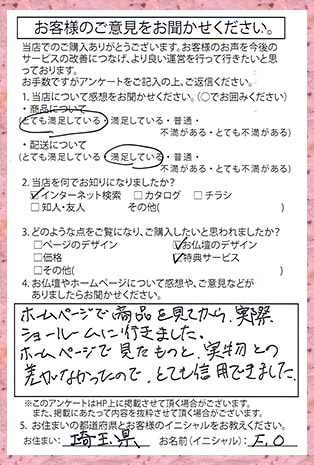 お客様のご意見をお聞かせください。
当店でのご購入ありがとうございます。お客様のお声を今後の
サービスの改善につなげ、より良い運営を行って行きたいと思
っております。
お手数ですがアンケートをご記入の上、ご返信ください。
1. 当店について感想をお聞かせください。(○でお囲みください)
・商品について
(とても満足している・満足している・普通・
不満がある・とても不満がある)
・配送について
(とても満足している・満足している・普通・
不満がある・とても不満がある)
2. 当店を何でお知りになりましたか?
☑インターネット検索 □カタログ □チラシ
□知人・友人 その他( )
3. どのような点をご覧になり、ご購入したいと思われましたか?
□ページのデザイン ☑お仏壇のデザイン
□価格 ☑特典サービス
□その他( )
4. お仏壇やホームページについて感想や、ご意見などが
ありましたらお聞かせください。
ホームページで商品を見てから、実際
ショールームに行きました。
ホームページで見たものと、実物との
差がなかったので、とても信用できました。
※このアンケートはHP上に掲載させて頂く場合がございます。
また、掲載にあたって内容を抜粋させて頂く場合がございます。
5. お住まいの都道府県とお客様のイニシャルをお教えください。
お住まい: 埼玉県 お名前(イニシャル): F.O